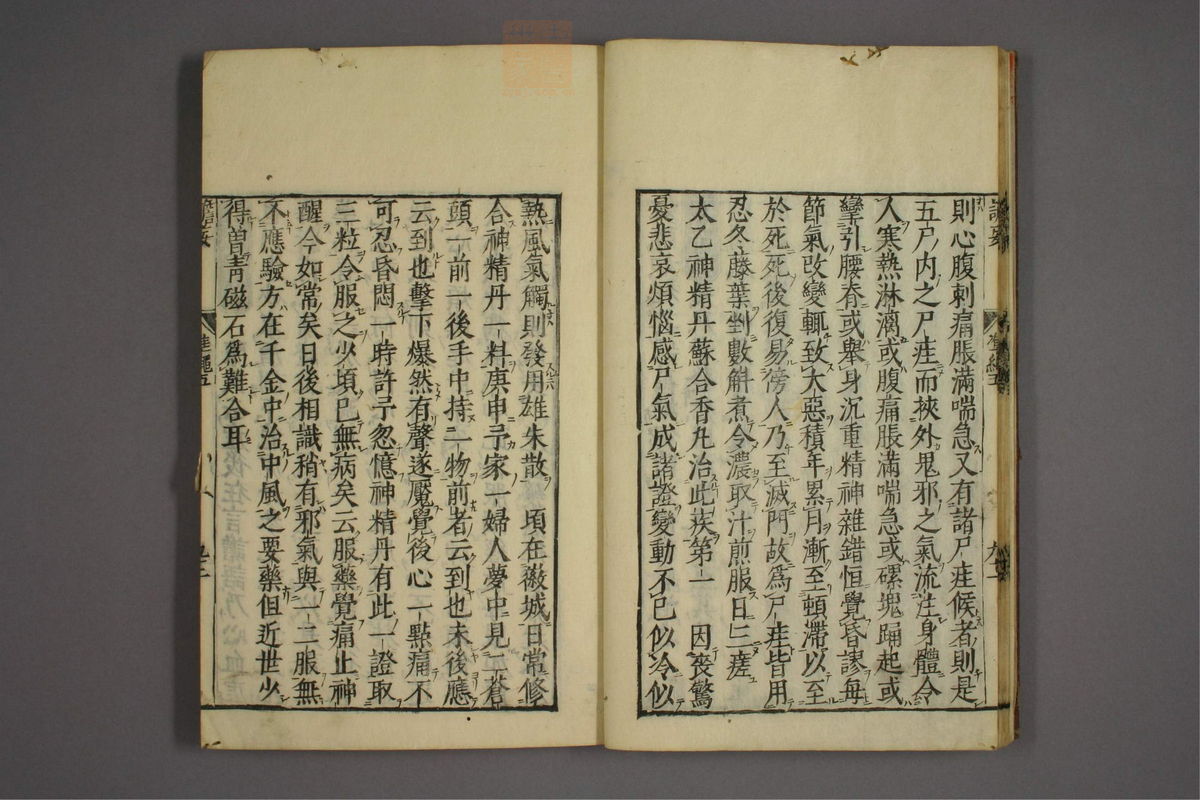 則心腹刺痛脹滿喘急又有諸尸疰候者則是
五尸内之尸疰而挾外鬼邪之氣流注身體令
人寒熱淋漓或腹痛脹滿喘急或磥塊踊起或
攣引腰脊或舉身沉重精神雜錯恒覺昏謬每
節氣改變輒致大惡積年累月漸至頓滯以至
於死死後復易傍人乃至滅門故爲尸疰皆用
忍冬藤葉剉數斛煮令濃取汁煎服日三瘥
太乙神精丹蘇合香丸治此疾第一 因喪驚
憂悲哀煩惱感尸氣成諸證變動不已似冷似
熱風氣觸則發用雄朱散 頃在徽城日常修
合神精丹一料庚申予家一婦人夢中見二蒼
頭一前一後手中持二物前者云到也未後應
云到也擊下爆然有聲遂魘覺後心一點痛不
可忍昏悶一時許予忽憶神精丹有此一證取
三粒令服之少頃已無病矣云服藥覺痛止神
醒今如常矣日後相識稍有邪氣與一二服無
不應驗方在千金中治中風之要藥但近世少
得曽青磁石爲難合耳
準繩五